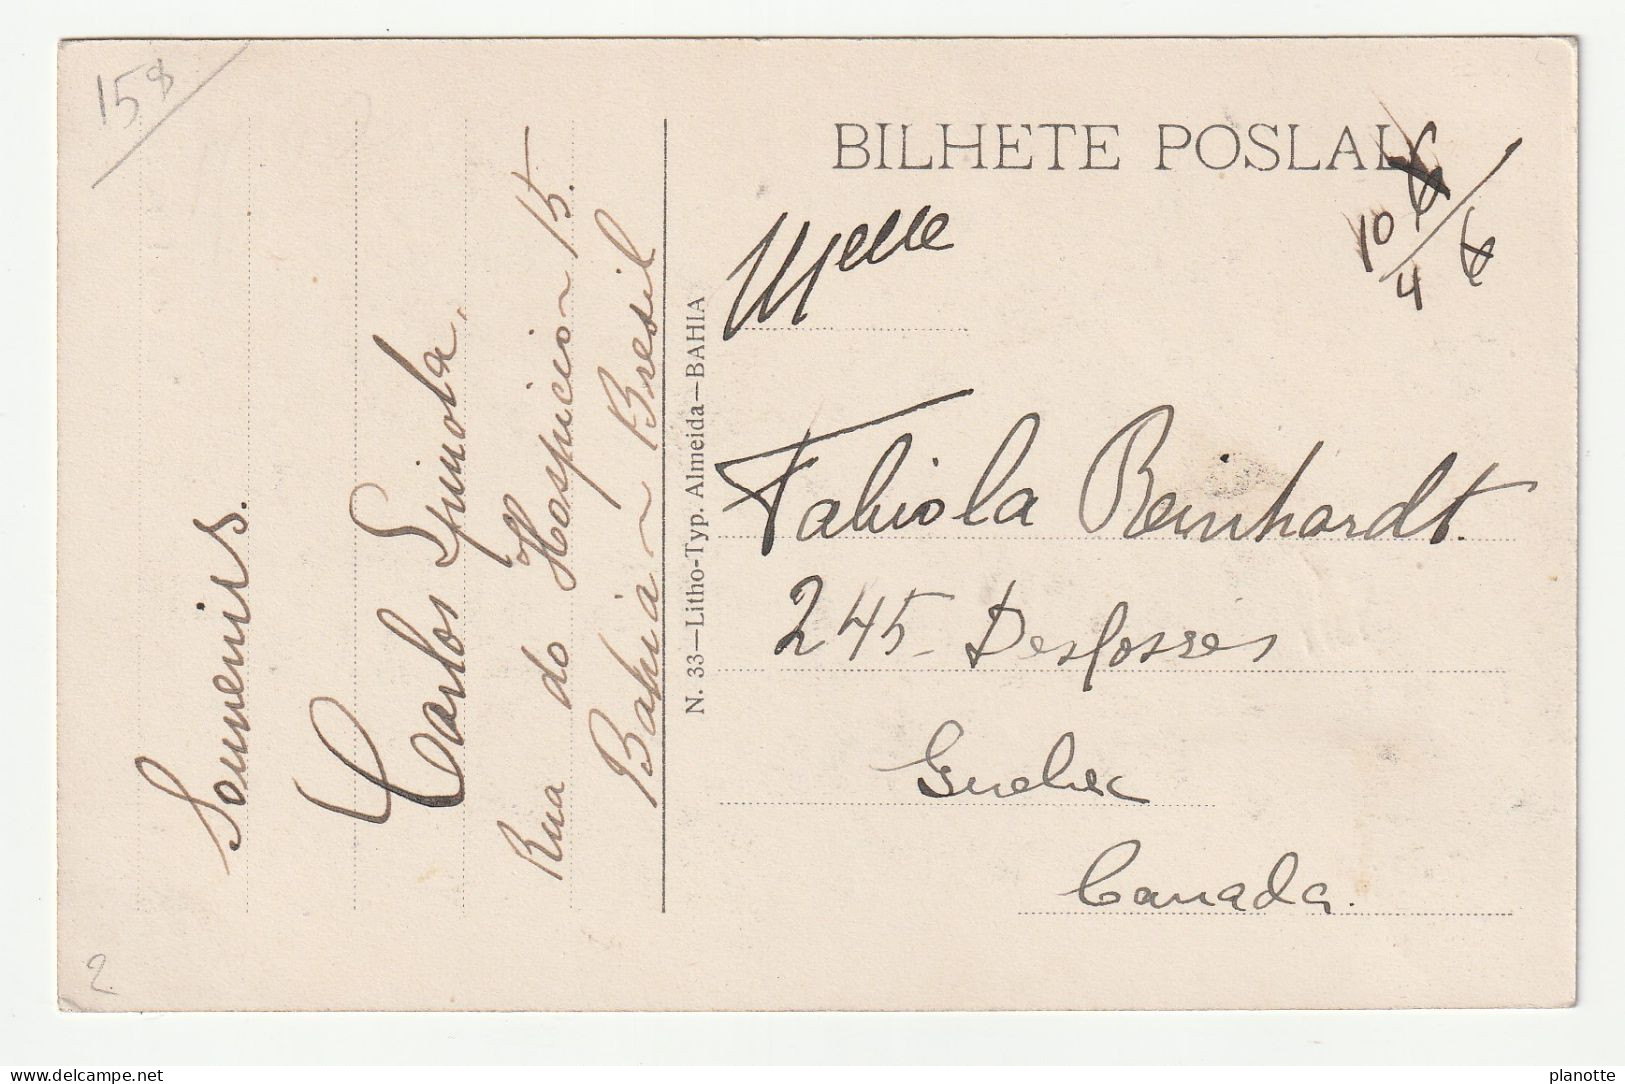 15$
BILHETE POSLAL
10
4
6
Melle
Fabiola Reinhardt.
245 - Desfosses
Quebec
Canada.
N. 33—Litho-Typ. Almeida—BAHIA
Souvenirs.
Carlos Spinola,
Rua do Hospicio ~ 15.
Bahia ~ Bresil
2
planotte